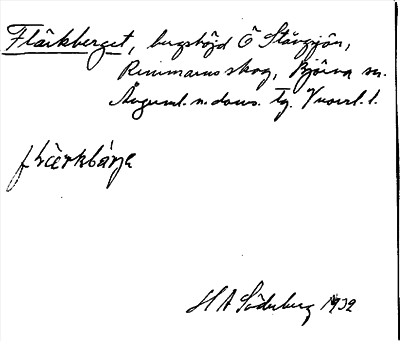 Flärkberget, bergshöjd Ö Stängsjön,
Rinnmarns skog, Björna sn.
Ångerml. n. doms. tg. Vnorrl. l.
flärkbárje
H A Söderberg 1932